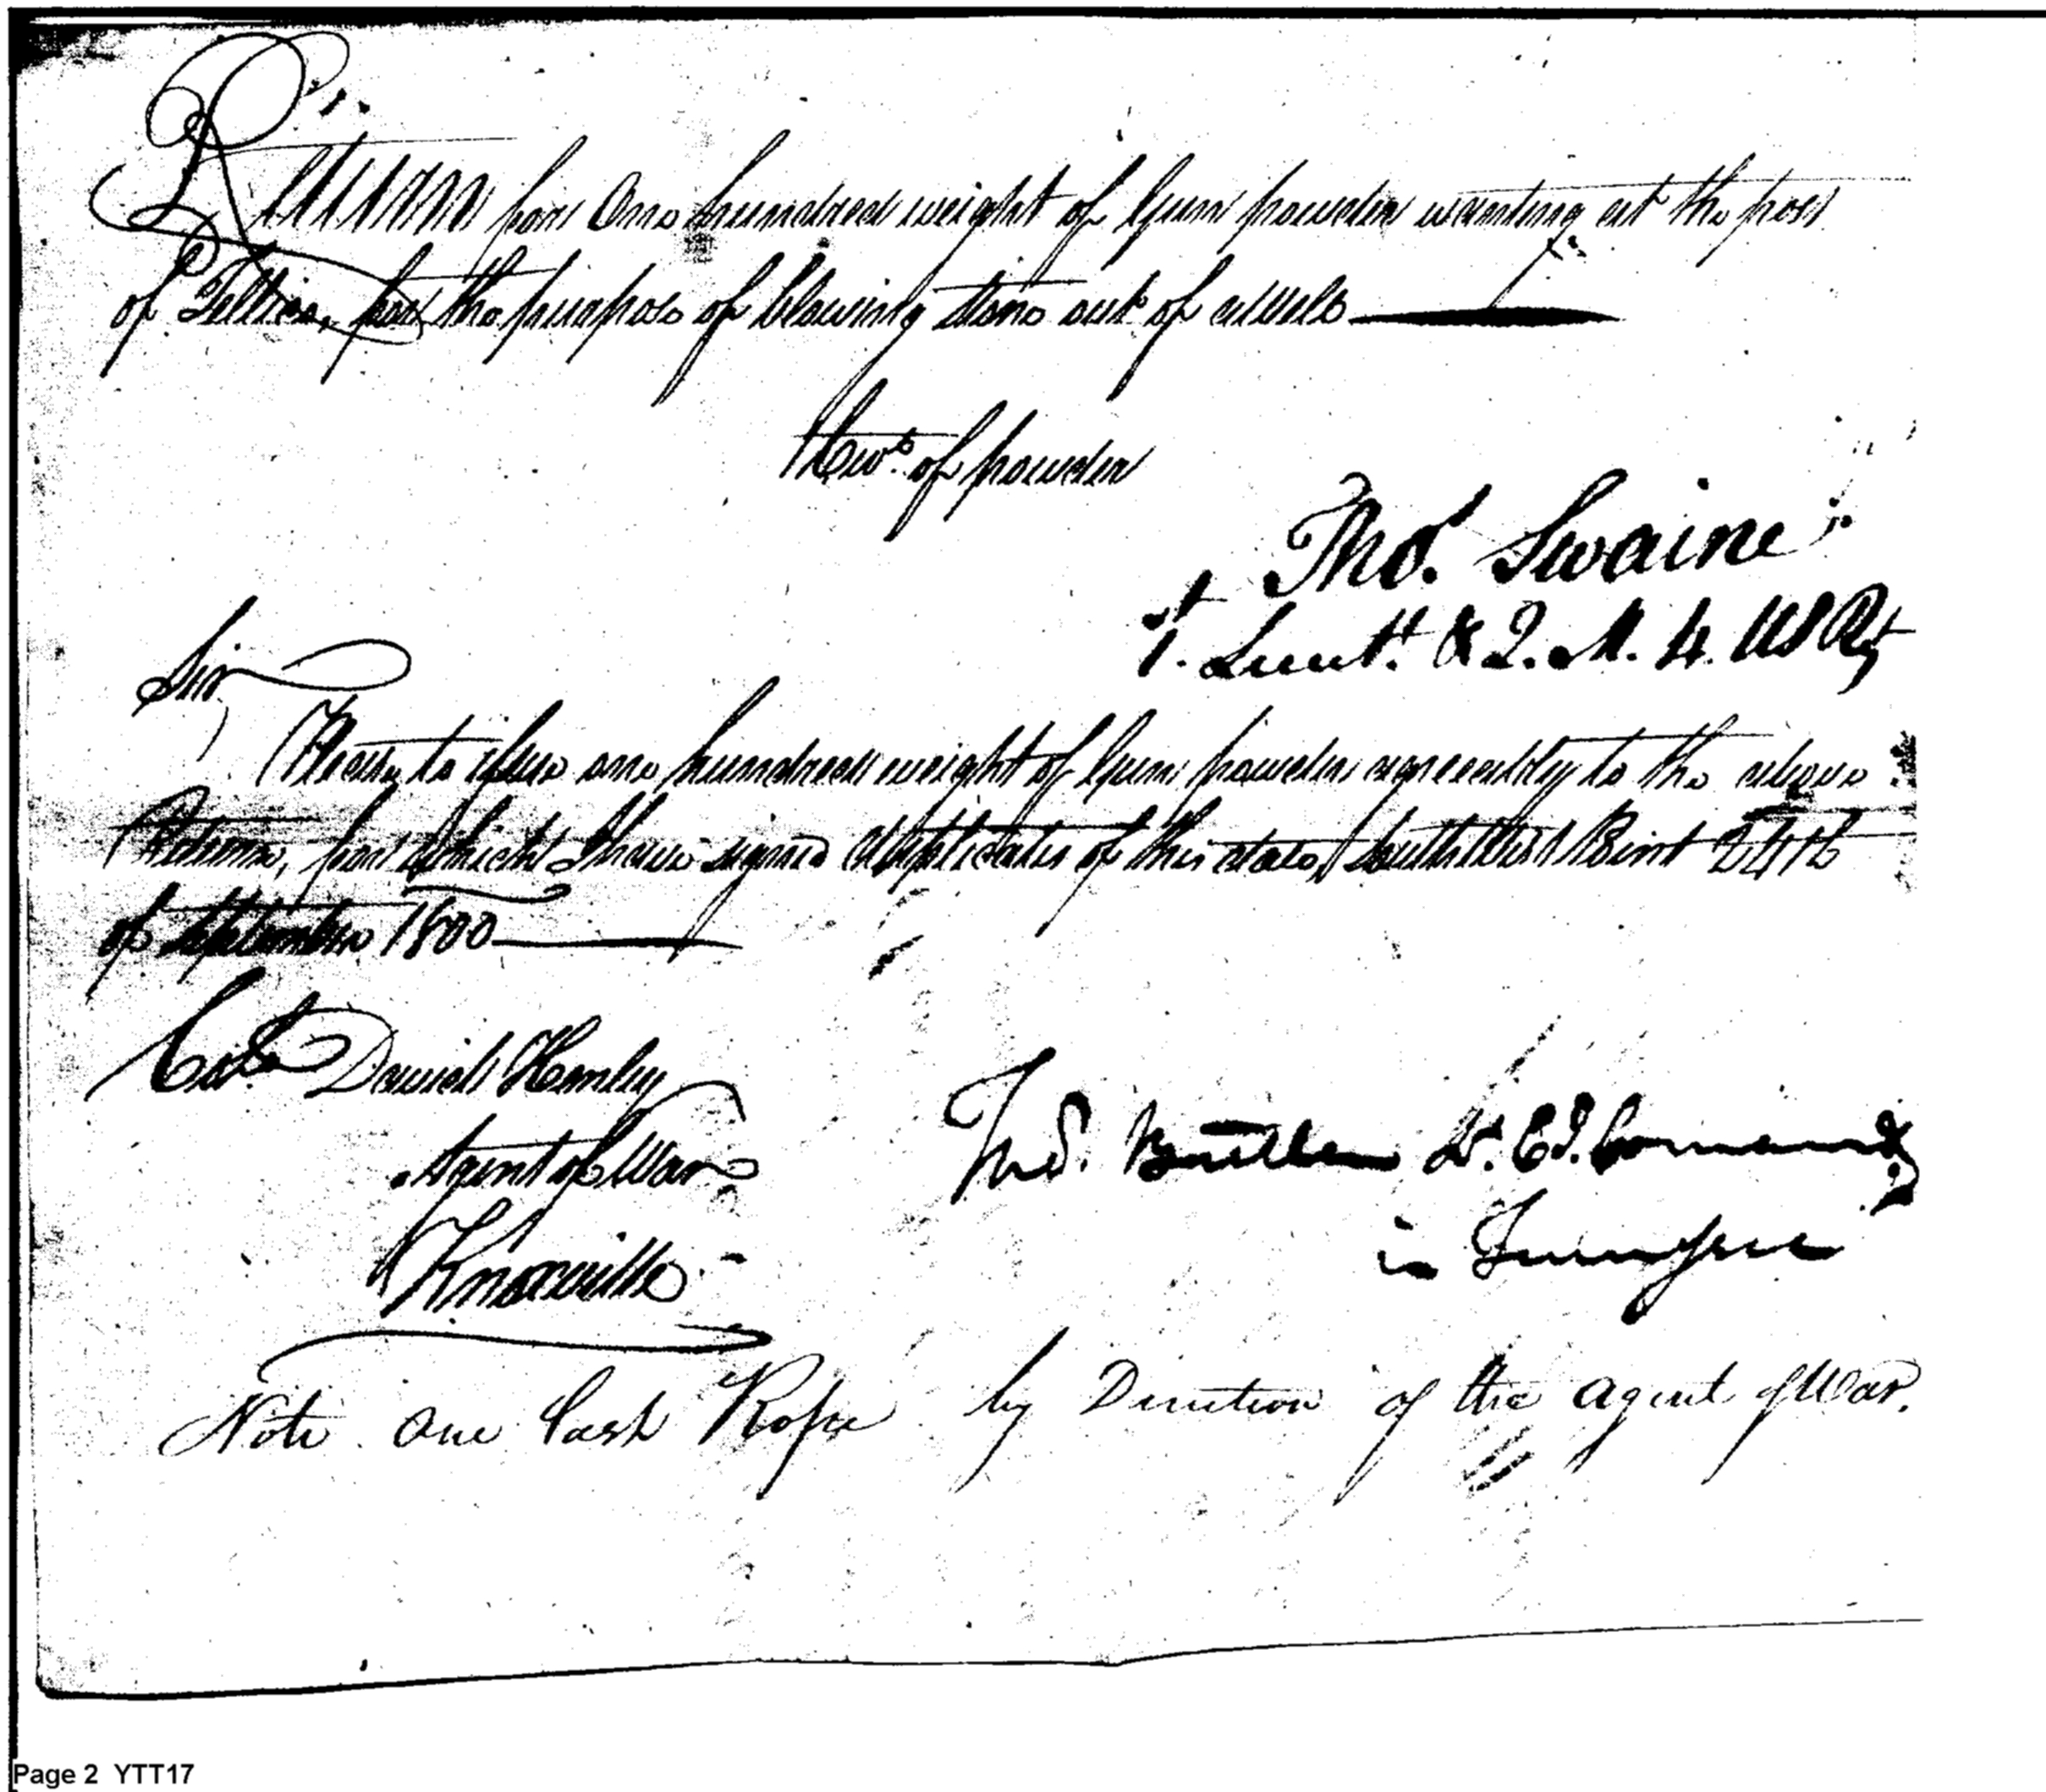 Return for One hundred weight of Gun powder wanting at the post
of Tellico, for the purpose of blowing stone out of a Well
1 Cwt. of powder
Thos. Swaine
1st. Lieut. & Q. M. 4. US Rgt
Sir
Please to issue one hundred weight of Gun powder agreeably to the above
Return, for which I have signed duplicates of this date, South West Point 24th
of September 1800
Colo. David Henley
Agent of War
Knoxville
Thos. Butler Lt. Col. Commandg
in Tennessee
Note one Cask Rope by Direction of the agent of War.
Page 2 YTT17